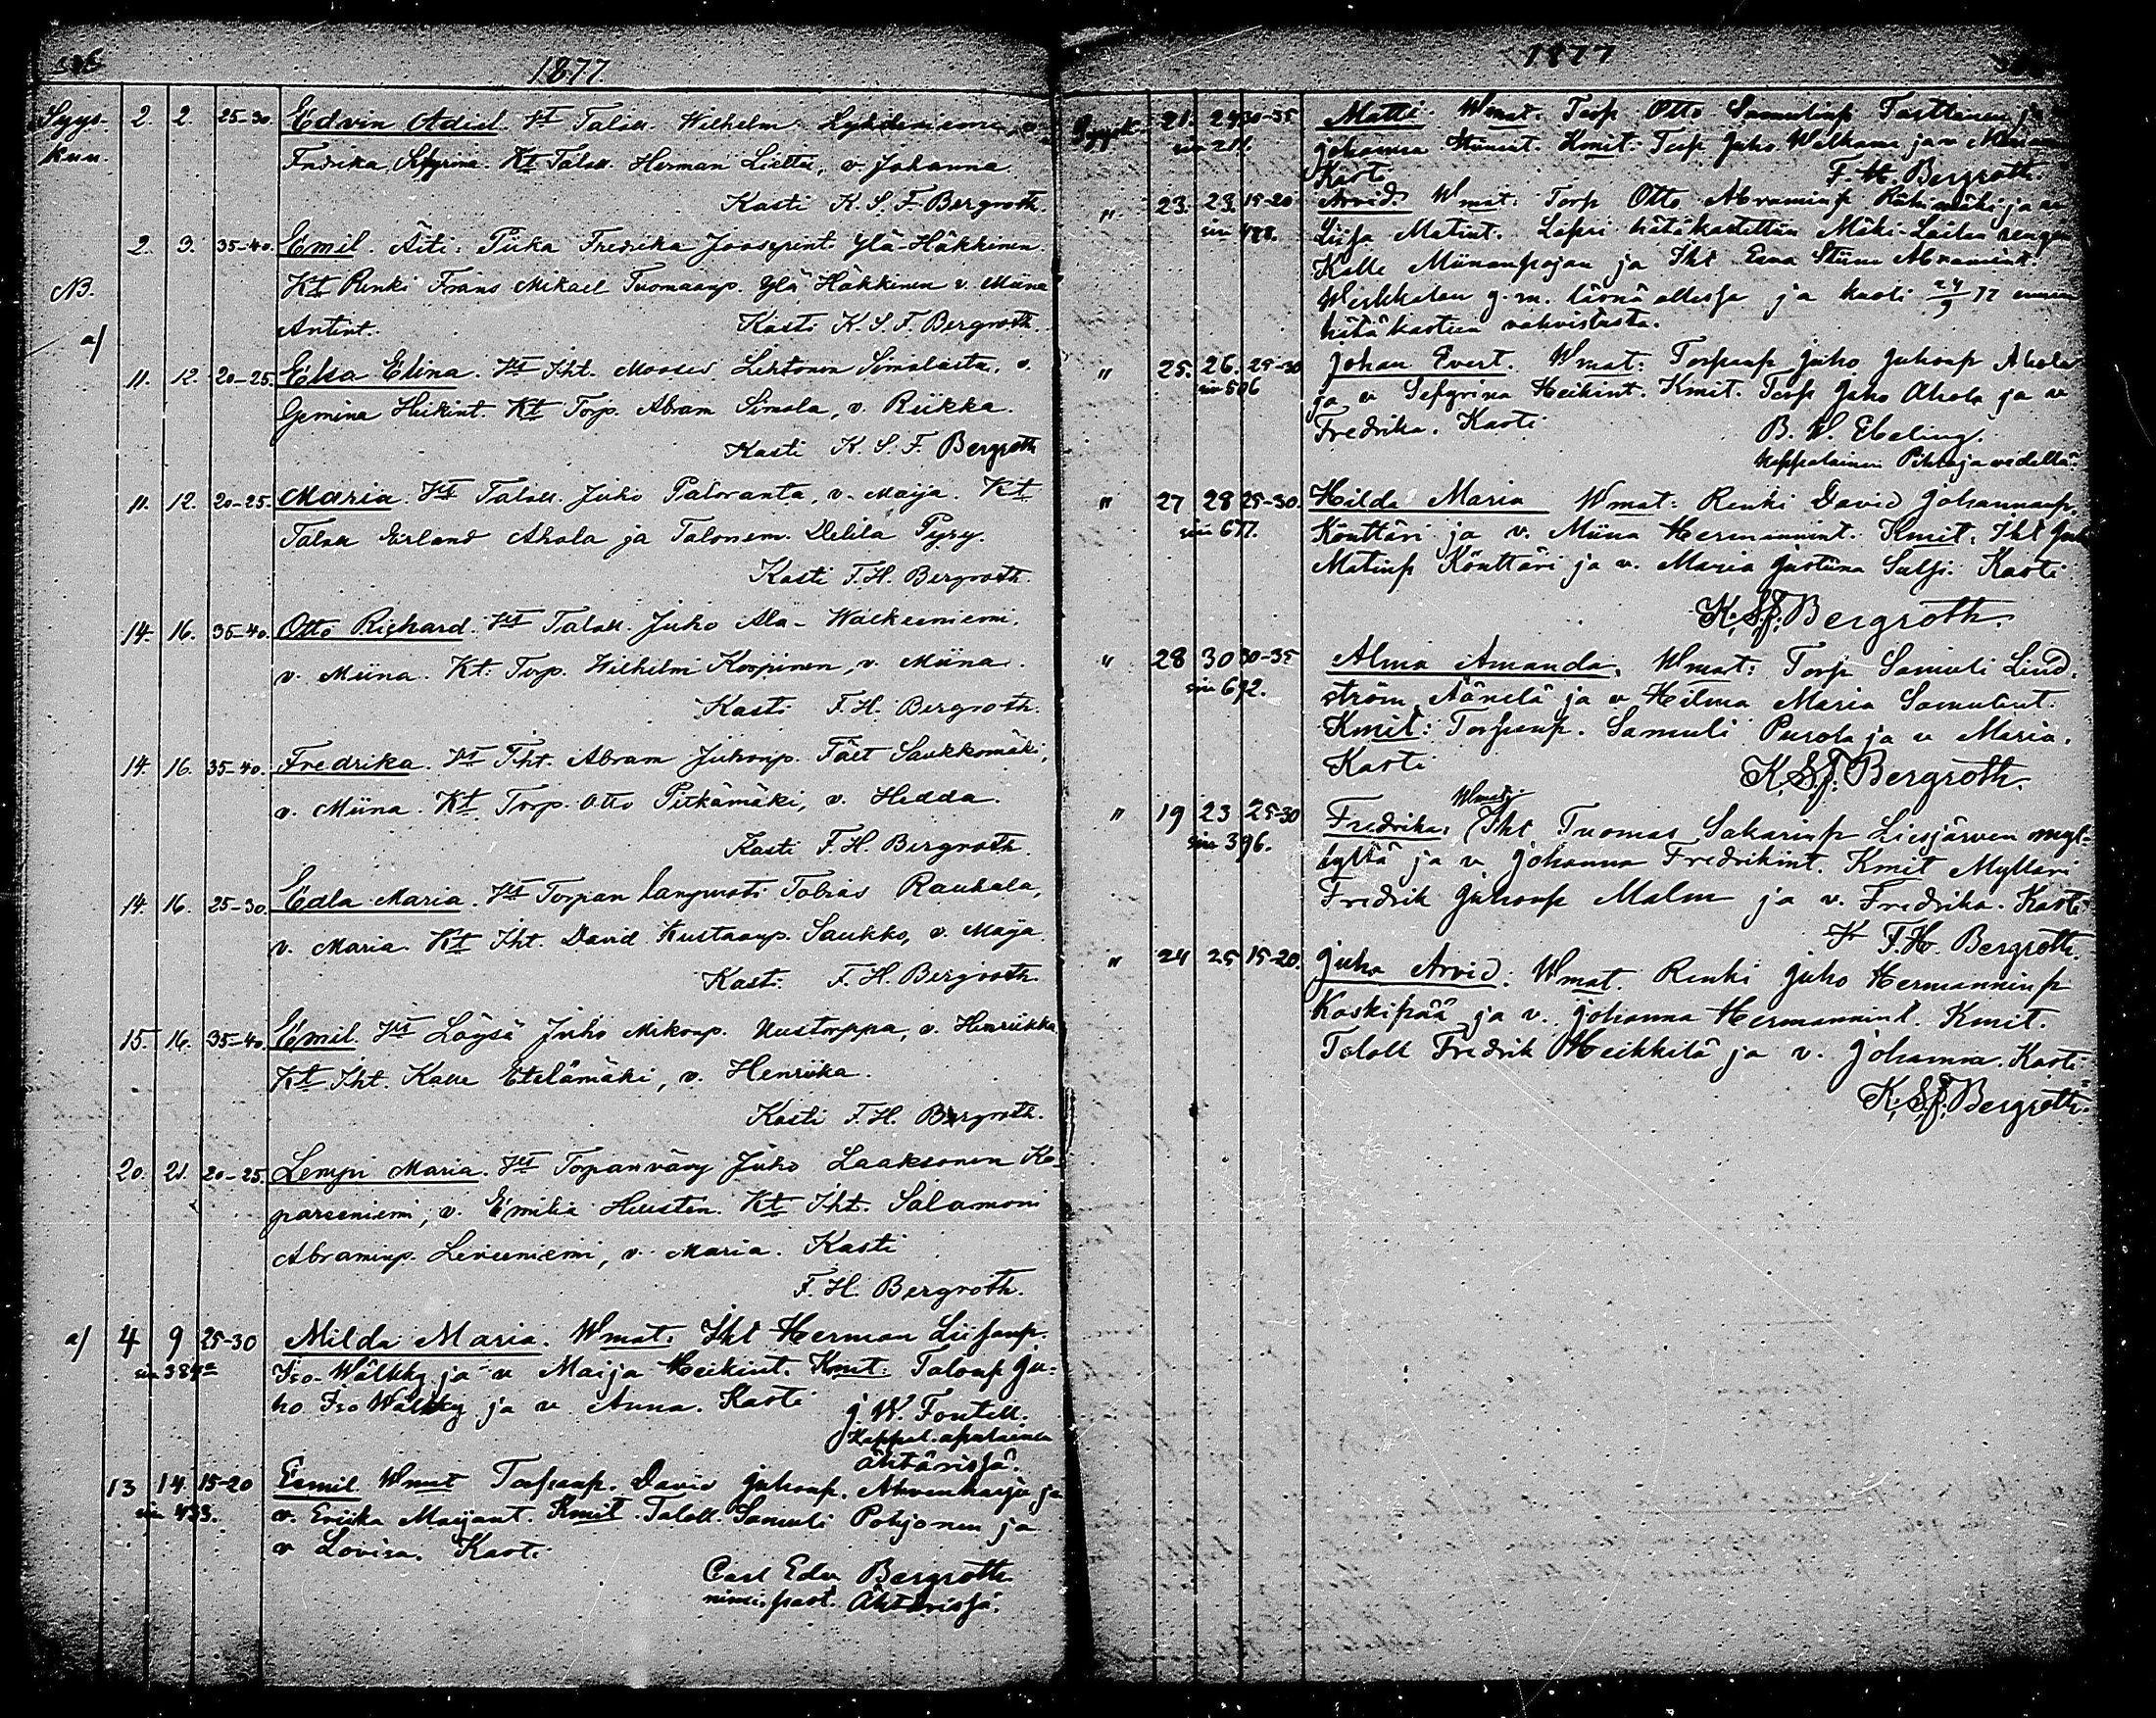 1877
Syys-
kuu.
2. 2. 25-30. Edvin Adiel. Vt Taloll. Wilhelm
Fredrika Sefyrina. Kt Taloll. Herman v. Johanna
Kasti K. S. F. Bergroth.
2. 3. 35-40. Emil. Äiti: Piika Fredrika Joosepint. Ylä-Häkkinen
NB. Kt Renki Frans Mikael Tuomaanp. Ylä Häkkinen v. Miina
Antint. Kasti K. S. F. Bergroth.
a/
11. 12. 20-25. Elsa Elina. Vt Iht. Mooses Lehtonen v.
Heikint. Kt Torp. Abram Simola, v. Riikka.
Kasti K. S. F. Bergroth
11. 12. 20-25. Maria. Vt Taloll. Juho Paloranta, v. Maija. Kt
Taloll Erland Ahola ja Talonem. Delila Pyry.
Kasti F. H. Bergroth.
14. 16. 35-40. Otto Richard. Vt Taloll. Juho Ala-
v. Miina. Kt: Torp. Wilhelm Korpinen, v. Miina.
Kasti F. H. Bergroth.
14. 16. 35-40. Fredrika. Vt Iht. Abram Juhonp. Fält Saukkomäki,
v. Miina. Kt Torp. Otto Pitkämäki, v. Hedda.
Kasti F. H. Bergroth.
14. 16. 25-30. Edla Maria. Vt Torpan lampuoti Tobias Rauhala,
v. Maria. Kt Iht. David Kustaanp. Saukko, v. Maija.
Kasti F. H. Bergroth.
15. 16. 35-40. Emil. Vt Löysä Juho Mikonp. Uustorppa, v. Henriikka
Kt Iht. Kalle Etelämäki, v. Henriika.
Kasti F. H. Bergroth.
20. 21. 20-25. Lempi Maria. Vt Torpanvävy Juho Laaksonen Ko-
v. Emilia Kt Iht. Salamoni
Abraminp. v. Maria. Kasti
F. H. Bergroth.
a/ 4 9 25-30 Milda Maria. Wmat: Iht Herman Liisanp.
Iso-Wälkky ja v Maija Heikint. Kmit: Talonp Ju-
ho Iso Wälkky ja v Anna. Kasti J. W. Fontell.
Kappal. apulainen
Ähtärissä.
13 14. 15-20 Eemil Wmat Torpanp. David Juhonp. Ahvenharju ja
siv 433. v. Eriika Maijant. Kmit. Taloll. Samuli Pohjonen ja
v Lovisa. Kasti
Carl Edv Bergroth.
nimi. past. Ähtärissä.
1877
21. 24 30-35 Matti. Wmat: Torp Otto Samulinp
Johanna Kmit. Torp Juho ja v
Kasti F. H. Bergroth.
" 23. 23. 15-20 Arvid. Wmat: Torp Otto Abraminp ja v
siv 488. Liisa Matint. Lapsi hätäkastettiin
Kalle ja Iht Eeva Stiina Abramint.
g. m. läsnä ollessa ja kuoli 24/9 77 ennen
hätäkasteen vahvistusta.
" 25. 26. 25-30 Johan Evert. Wmat: Torpanp Juho Juhonp Ahola
siv 506 ja v Sefyrina Heikint. Kmit. Torp Juho Ahola ja v
Fredrika. Kasti B. W. Ebeling.
Kappalainen Pihlajavedellä.
" 27 28 25-30. Hilda Maria Wmat: Renki David Johannanp.
siv 677. Könttäri ja v. Miina Hermannint. Kmit: Iht Juho
Matinp Könttäri ja v. Maria Justiina Kasti
K. S. F. Bergroth.
" 28 30 30-35 Alma Amanda. Wmat: Torp Samuli Lind-
siv 692. ström Äänelä ja v Hilma Maria Samulint.
Kmit: Torpanp. Samuli Purola ja v Maria.
Kasti K. S. F. Bergroth.
" 19 23 25-30 Fredrika. Wmat: Iht Tuomas Sakarinp Liesjärven myl-
siv 396. lyltä ja v Johanna Fredrikint. Kmit Mylläri
Fredrik Juhonp Malm ja v. Fredrika. Kasti
F. H. Bergroth.
" 24 25 15-20. Juho Arvid. Wmat. Renki Juho Hermanninp
Koskipää ja v. Johanna Hermannint. Kmit.
Taloll Fredrik Heikkilä ja v. Johanna. Kasti
K. S. F. Bergroth.